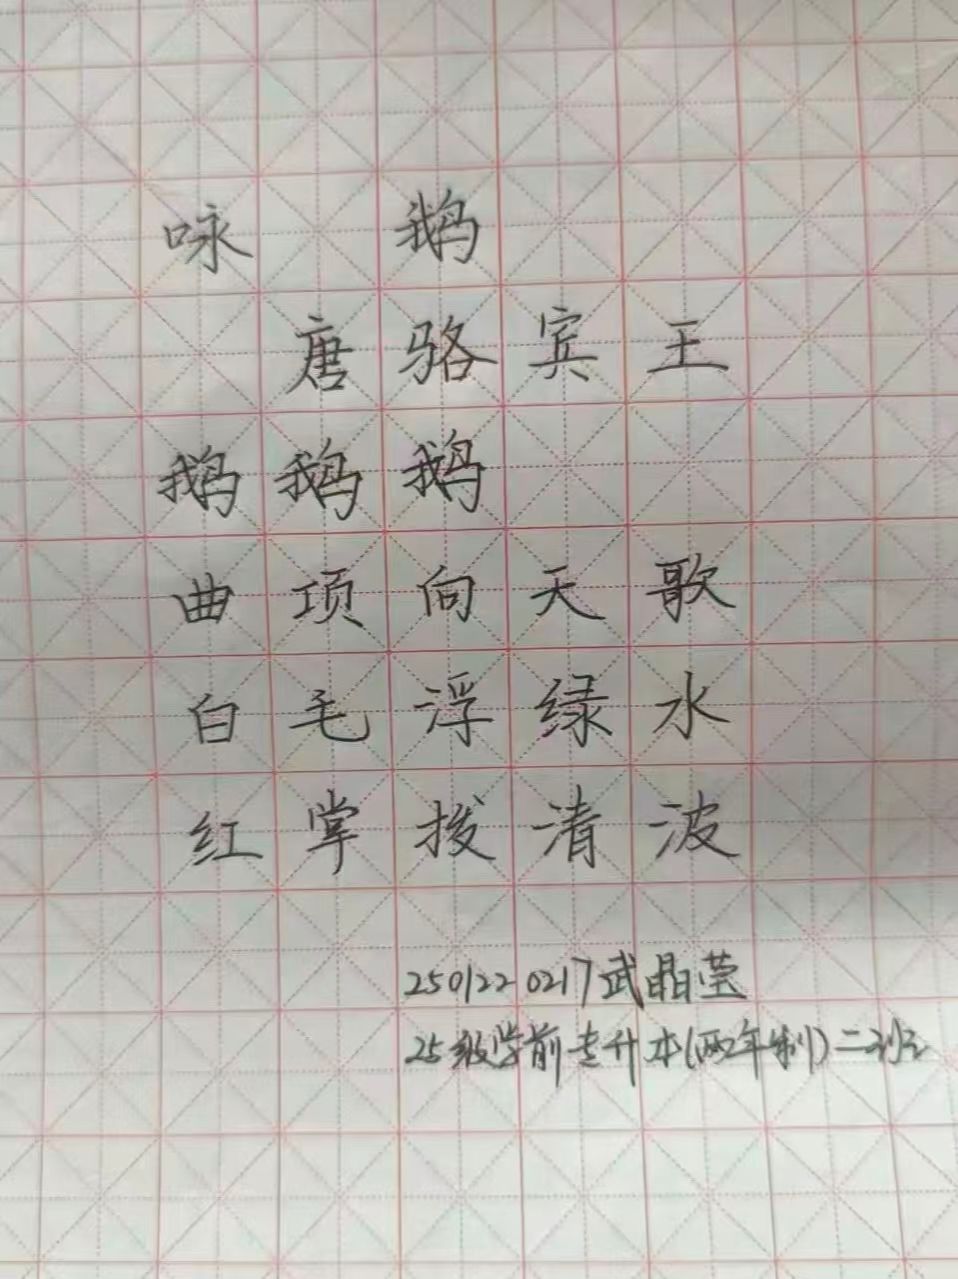 咏 鹅
唐骆宾王
鹅鹅鹅
曲项向天歌
白毛浮绿水
红掌拨清波
2501220217武晶莹
25级学前专升本(两年制)二班